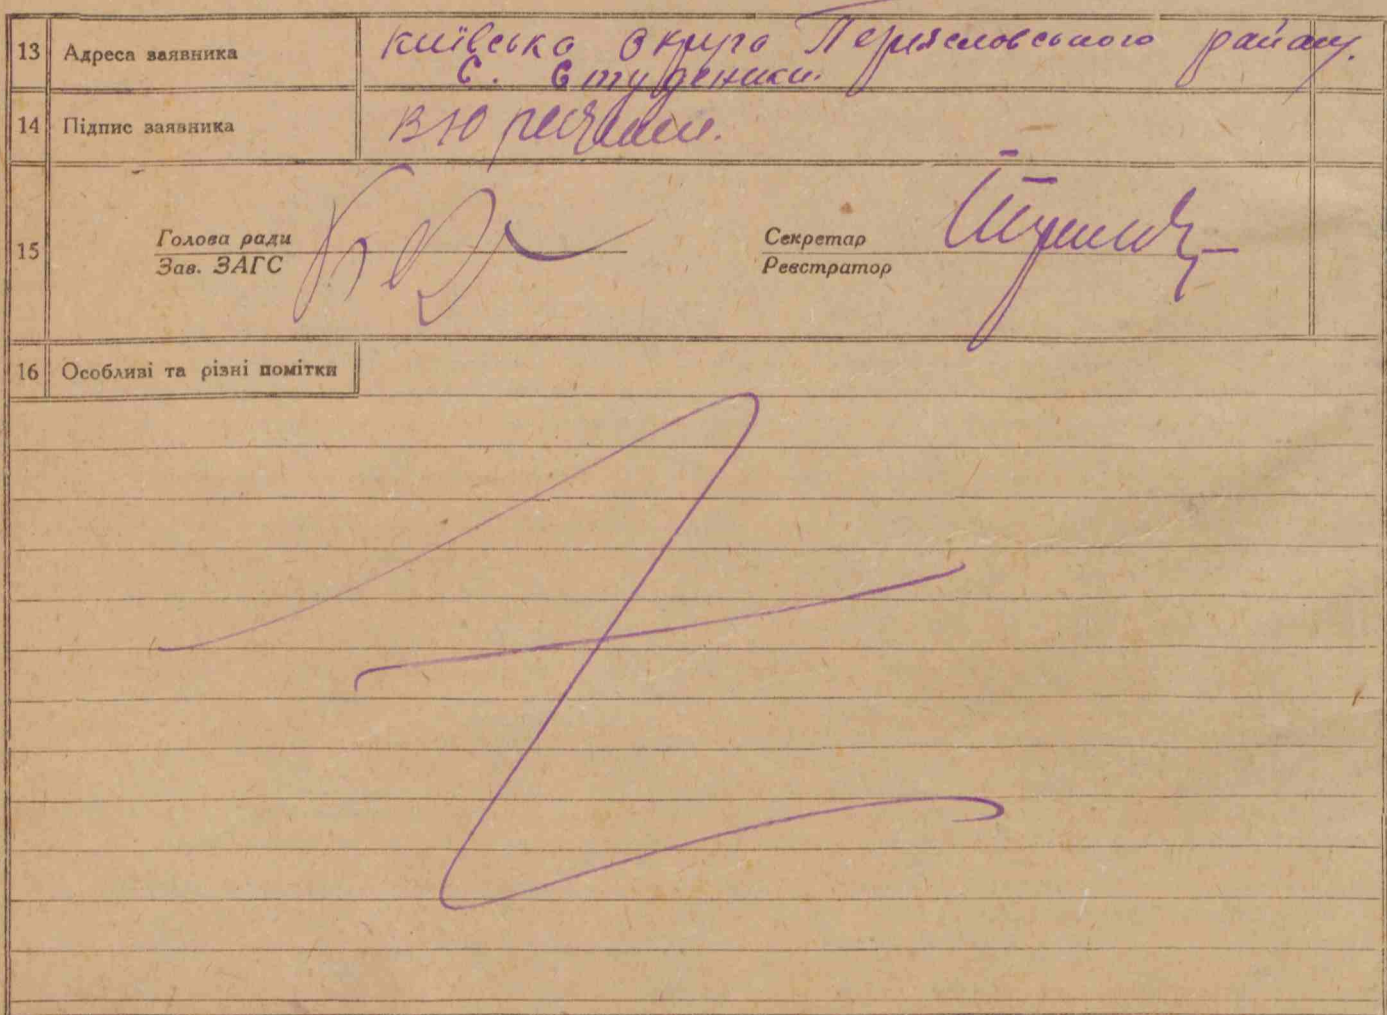 13 Адреса заявника Київська округа Переяславського району.
С. Студеники.
14 Підпис заявника
15 Голова ради
Зав. ЗАГС
Секретар
Реєстратор
16 Особливі та різні помітки